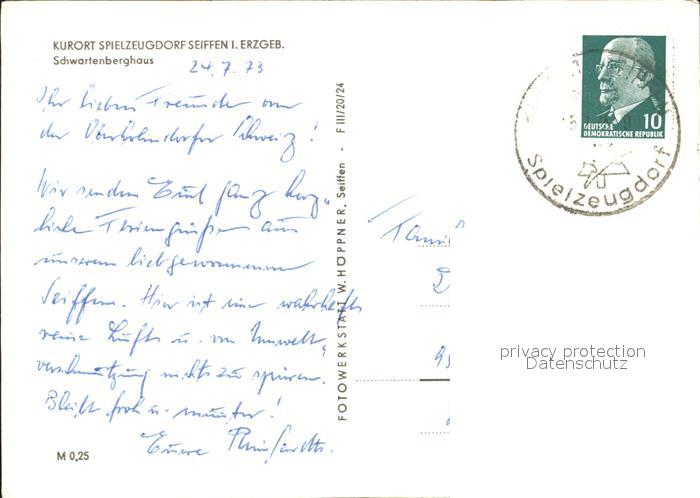 KURORT SPIELZEUGDORF SEIFFEN I. ERZGEB.
Schwartenberghaus
24.7.73
Ihr lieben Freunde von
der Oberhohndorfer Schweiz!
Wir senden Euch ganz herz-
liche Feriengrüße aus
unserem liebgewonnenen
Seiffen. Hier ist eine wahrhaft
reine Luft u. von Umwelt-
verschmutzung nichts zu spüren.
Bleibt froh u. munter!
Eure
M 0,25
FOTOWERKSTATT W. HÖPPNER, Seiffen - F III/20/24
DEUTSCHE
DEMOKRATISCHE REPUBLIK
10
Spielzeugdorf
privacy protection
Datenschutz